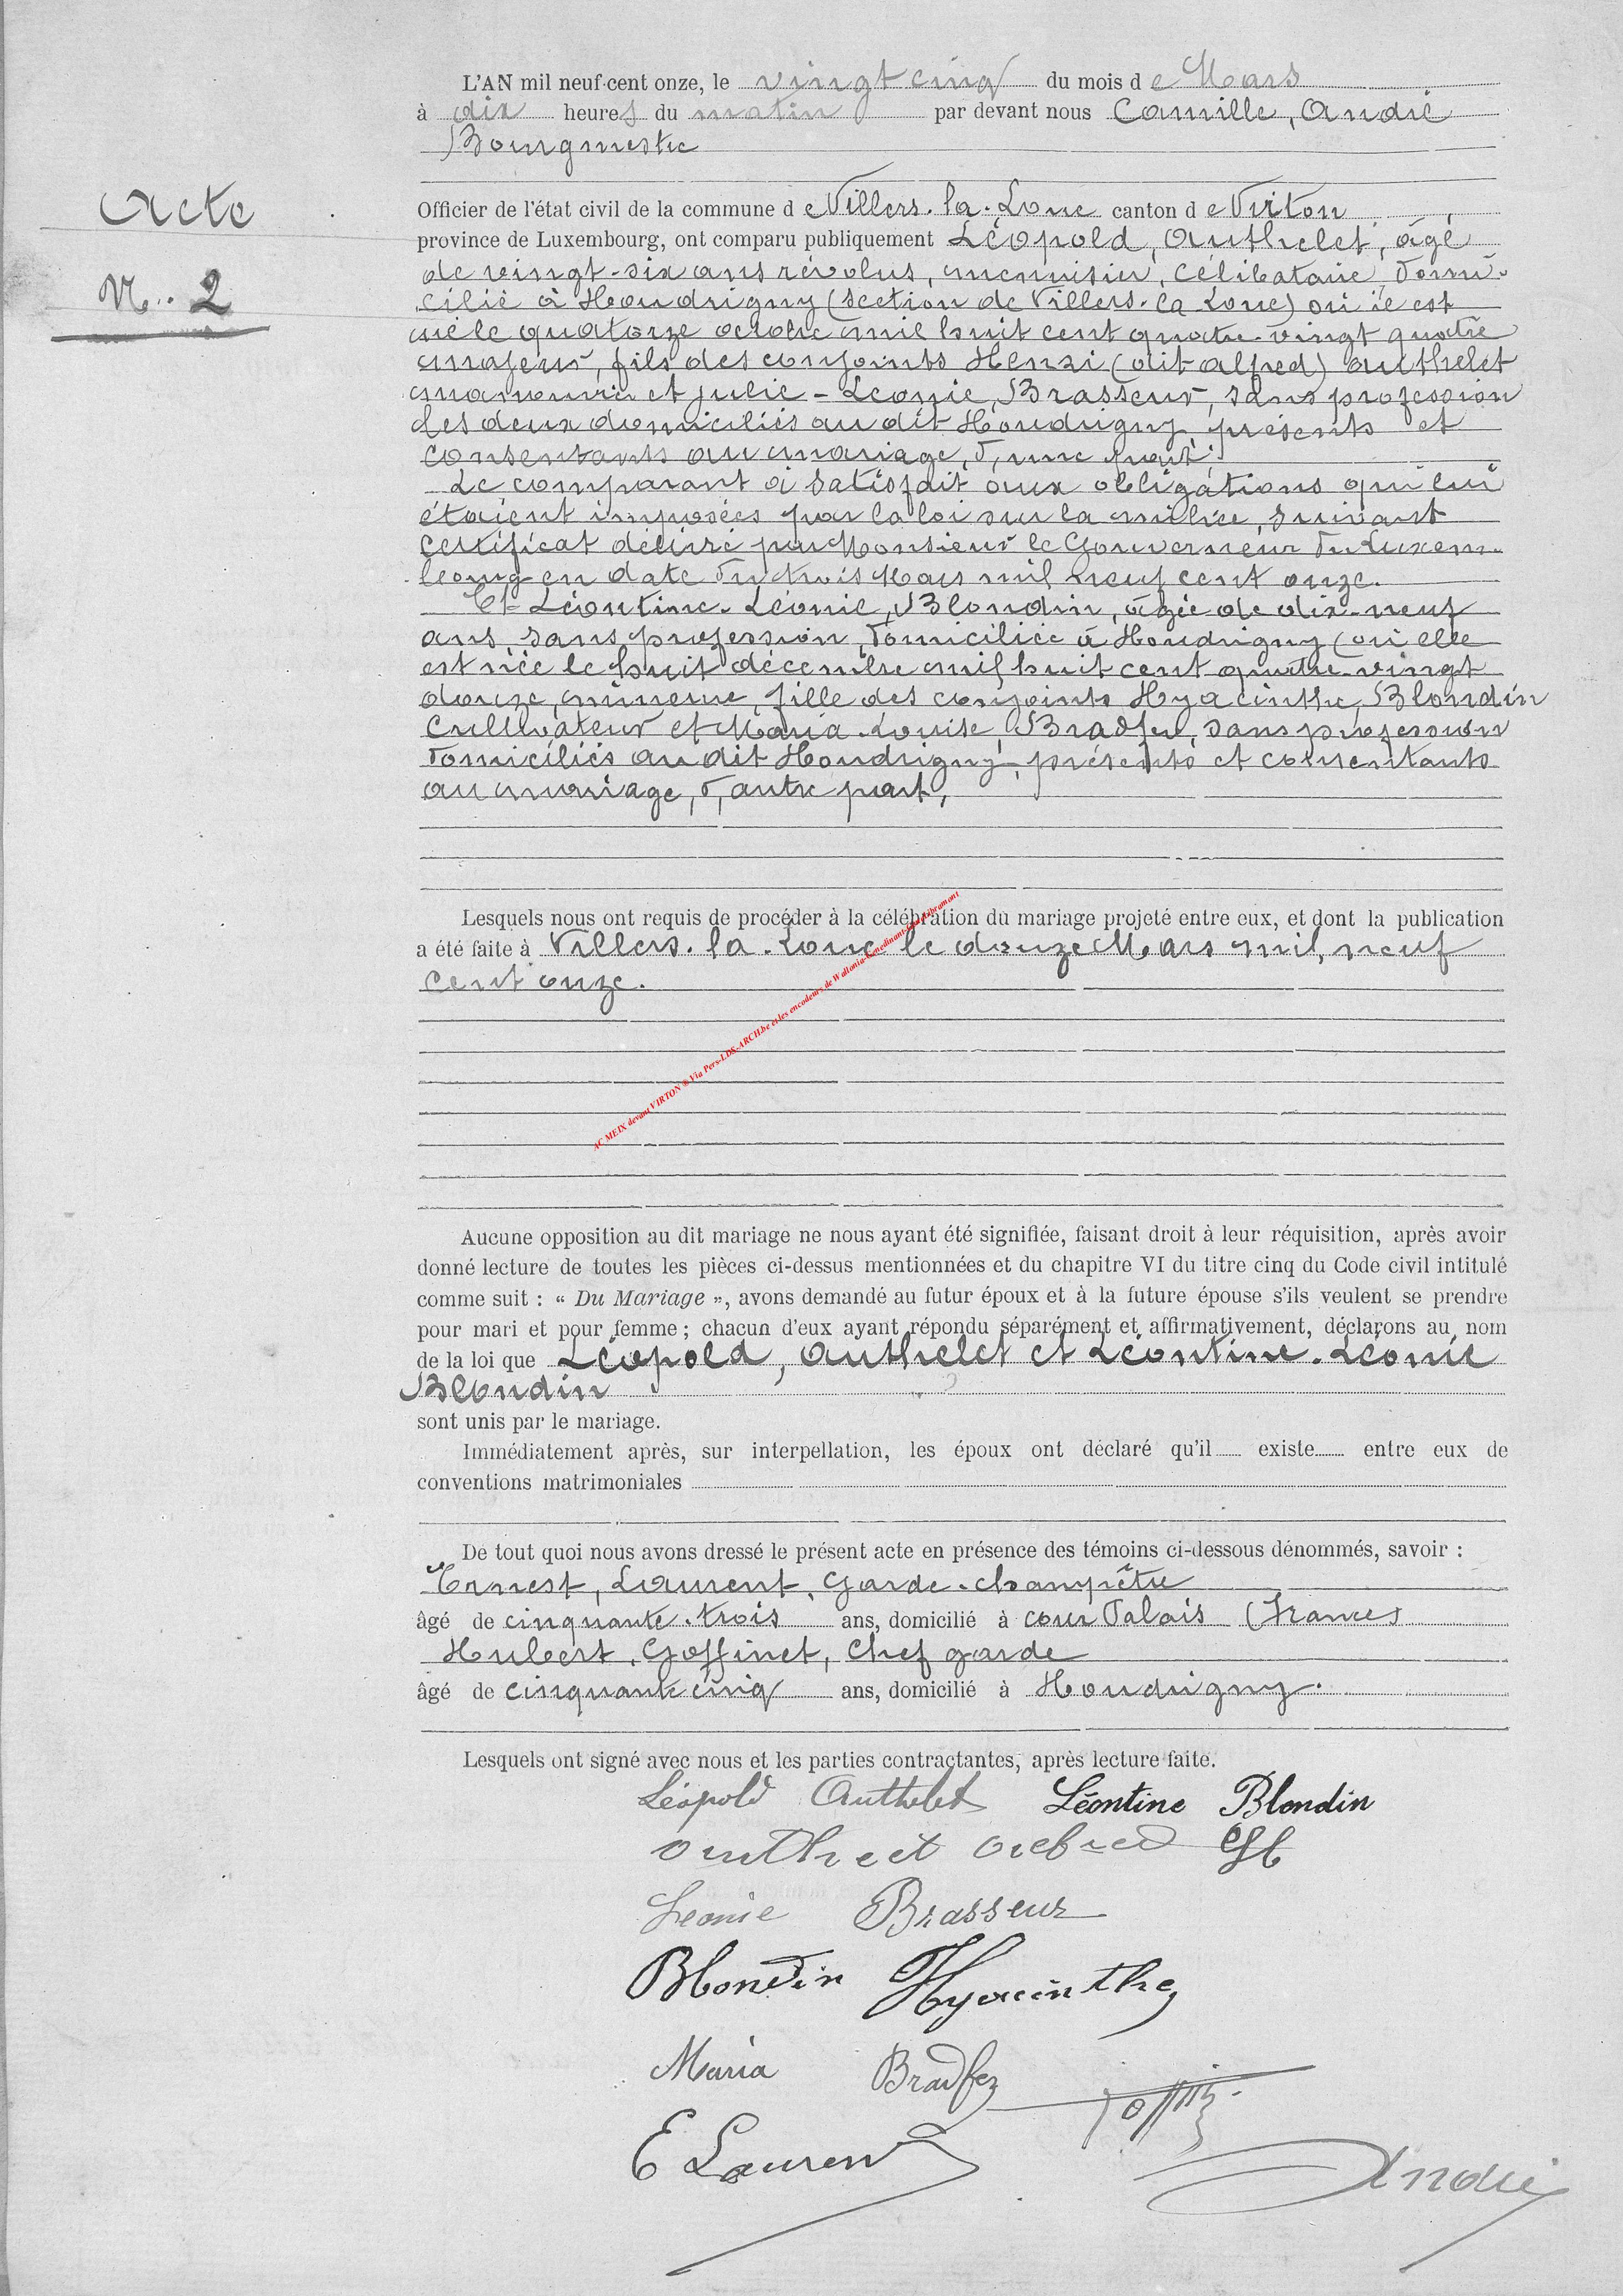 L'AN mil neuf cent onze, le vingt cinq du mois de Mars
à dix heures du matin par devant nous Camille, André
Bourgmestre
Acte
N.. 2
Officier de l'état civil de la commune de Villers-la-Loue canton de Virton
province de Luxembourg, ont comparu publiquement Léopold, Authelet, âgé
de vingt-six ans révolus, menuisier, célibataire, domi-
cilié à Houdrigny (section de Villers-la-Loue) où il est
né le quatorze octobre mil huit cent quatre-vingt quatre
majeur, fils des conjoints Henri (dit alfred) authelet
manouvrier et Julie-Léonie, Brasseur, sans profession
les deux domiciliés au dit Houdrigny, présents et
consentants au mariage, d'une part;
Le comparant a satisfait aux obligations qui lui
étaient imposées par la loi sur la milice, suivant
certificat délivré par Monsieur le Gouverneur du Luxem-
bourg en date du trois Mars mil neuf cent onze.
Et Léontine-Léonie, Blondin, âgée de dix-neuf
ans, sans profession, domiciliée à Houdrigny (où elle
est née le huit décembre mil huit cent quatre-vingt
douze, mineure, fille des conjoints Hyacinthe, Blondin
cultivateur et Maria-Louise, Bradfer, sans profession
domiciliés au dit Houdrigny, présents et consentants
au mariage, d'autre part,
Lesquels nous ont requis de procéder à la célébration du mariage projeté entre eux, et dont la publication
a été faite à Villers-la-Loue le douze Mars mil neuf
cent onze.
AC MEIX devant VIRTON ® Via Pers-LDS-ARCH.be et les encodeurs de Wallonia
Aucune opposition au dit mariage ne nous ayant été signifiée, faisant droit à leur réquisition, après avoir
donné lecture de toutes les pièces ci-dessus mentionnées et du chapitre VI du titre cinq du Code civil intitulé
comme suit : « Du Mariage », avons demandé au futur époux et à la future épouse s'ils veulent se prendre
pour mari et pour femme ; chacun d'eux ayant répondu séparément et affirmativement, déclarons au nom
de la loi que Léopold, Authelet et Léontine-Léonie
Blondin
sont unis par le mariage.
Immédiatement après, sur interpellation, les époux ont déclaré qu'il existe entre eux de
conventions matrimoniales
De tout quoi nous avons dressé le présent acte en présence des témoins ci-dessous dénommés, savoir :
Ernest, Laurent, Garde-champêtre
âgé de cinquante-trois ans, domicilié à cour Palais (France)
Hubert, Goffinet, Chef garde
âgé de cinquante cinq ans, domicilié à Houdrigny.
Lesquels ont signé avec nous et les parties contractantes, après lecture faite.
Léopold Authelet Léontine Blondin
authelet alfred
Leonie Brasseur
Blondin Hyacinthe
Maria Bradfer
E Laurent
André